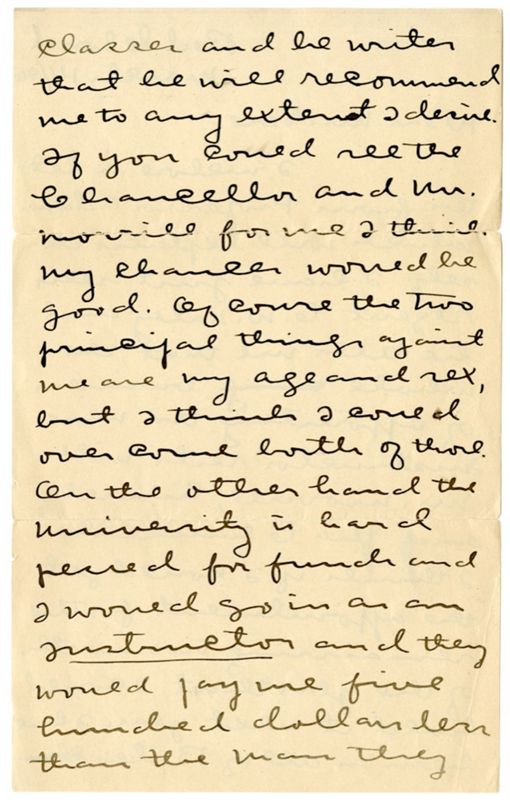 classes and he writes
that he will recommend
me to any extent I desire.
If you could see the
Chancellor and Mr.
Morrill for me I think
my chances would be
good. Of course the two
principal things against
me are my age and sex,
but I think I could
over come both of those.
On the other hand the
University is hard
pessed for funds and
I would go in as an
Instructor and they
would pay me five
hundred dollars less
than the man they